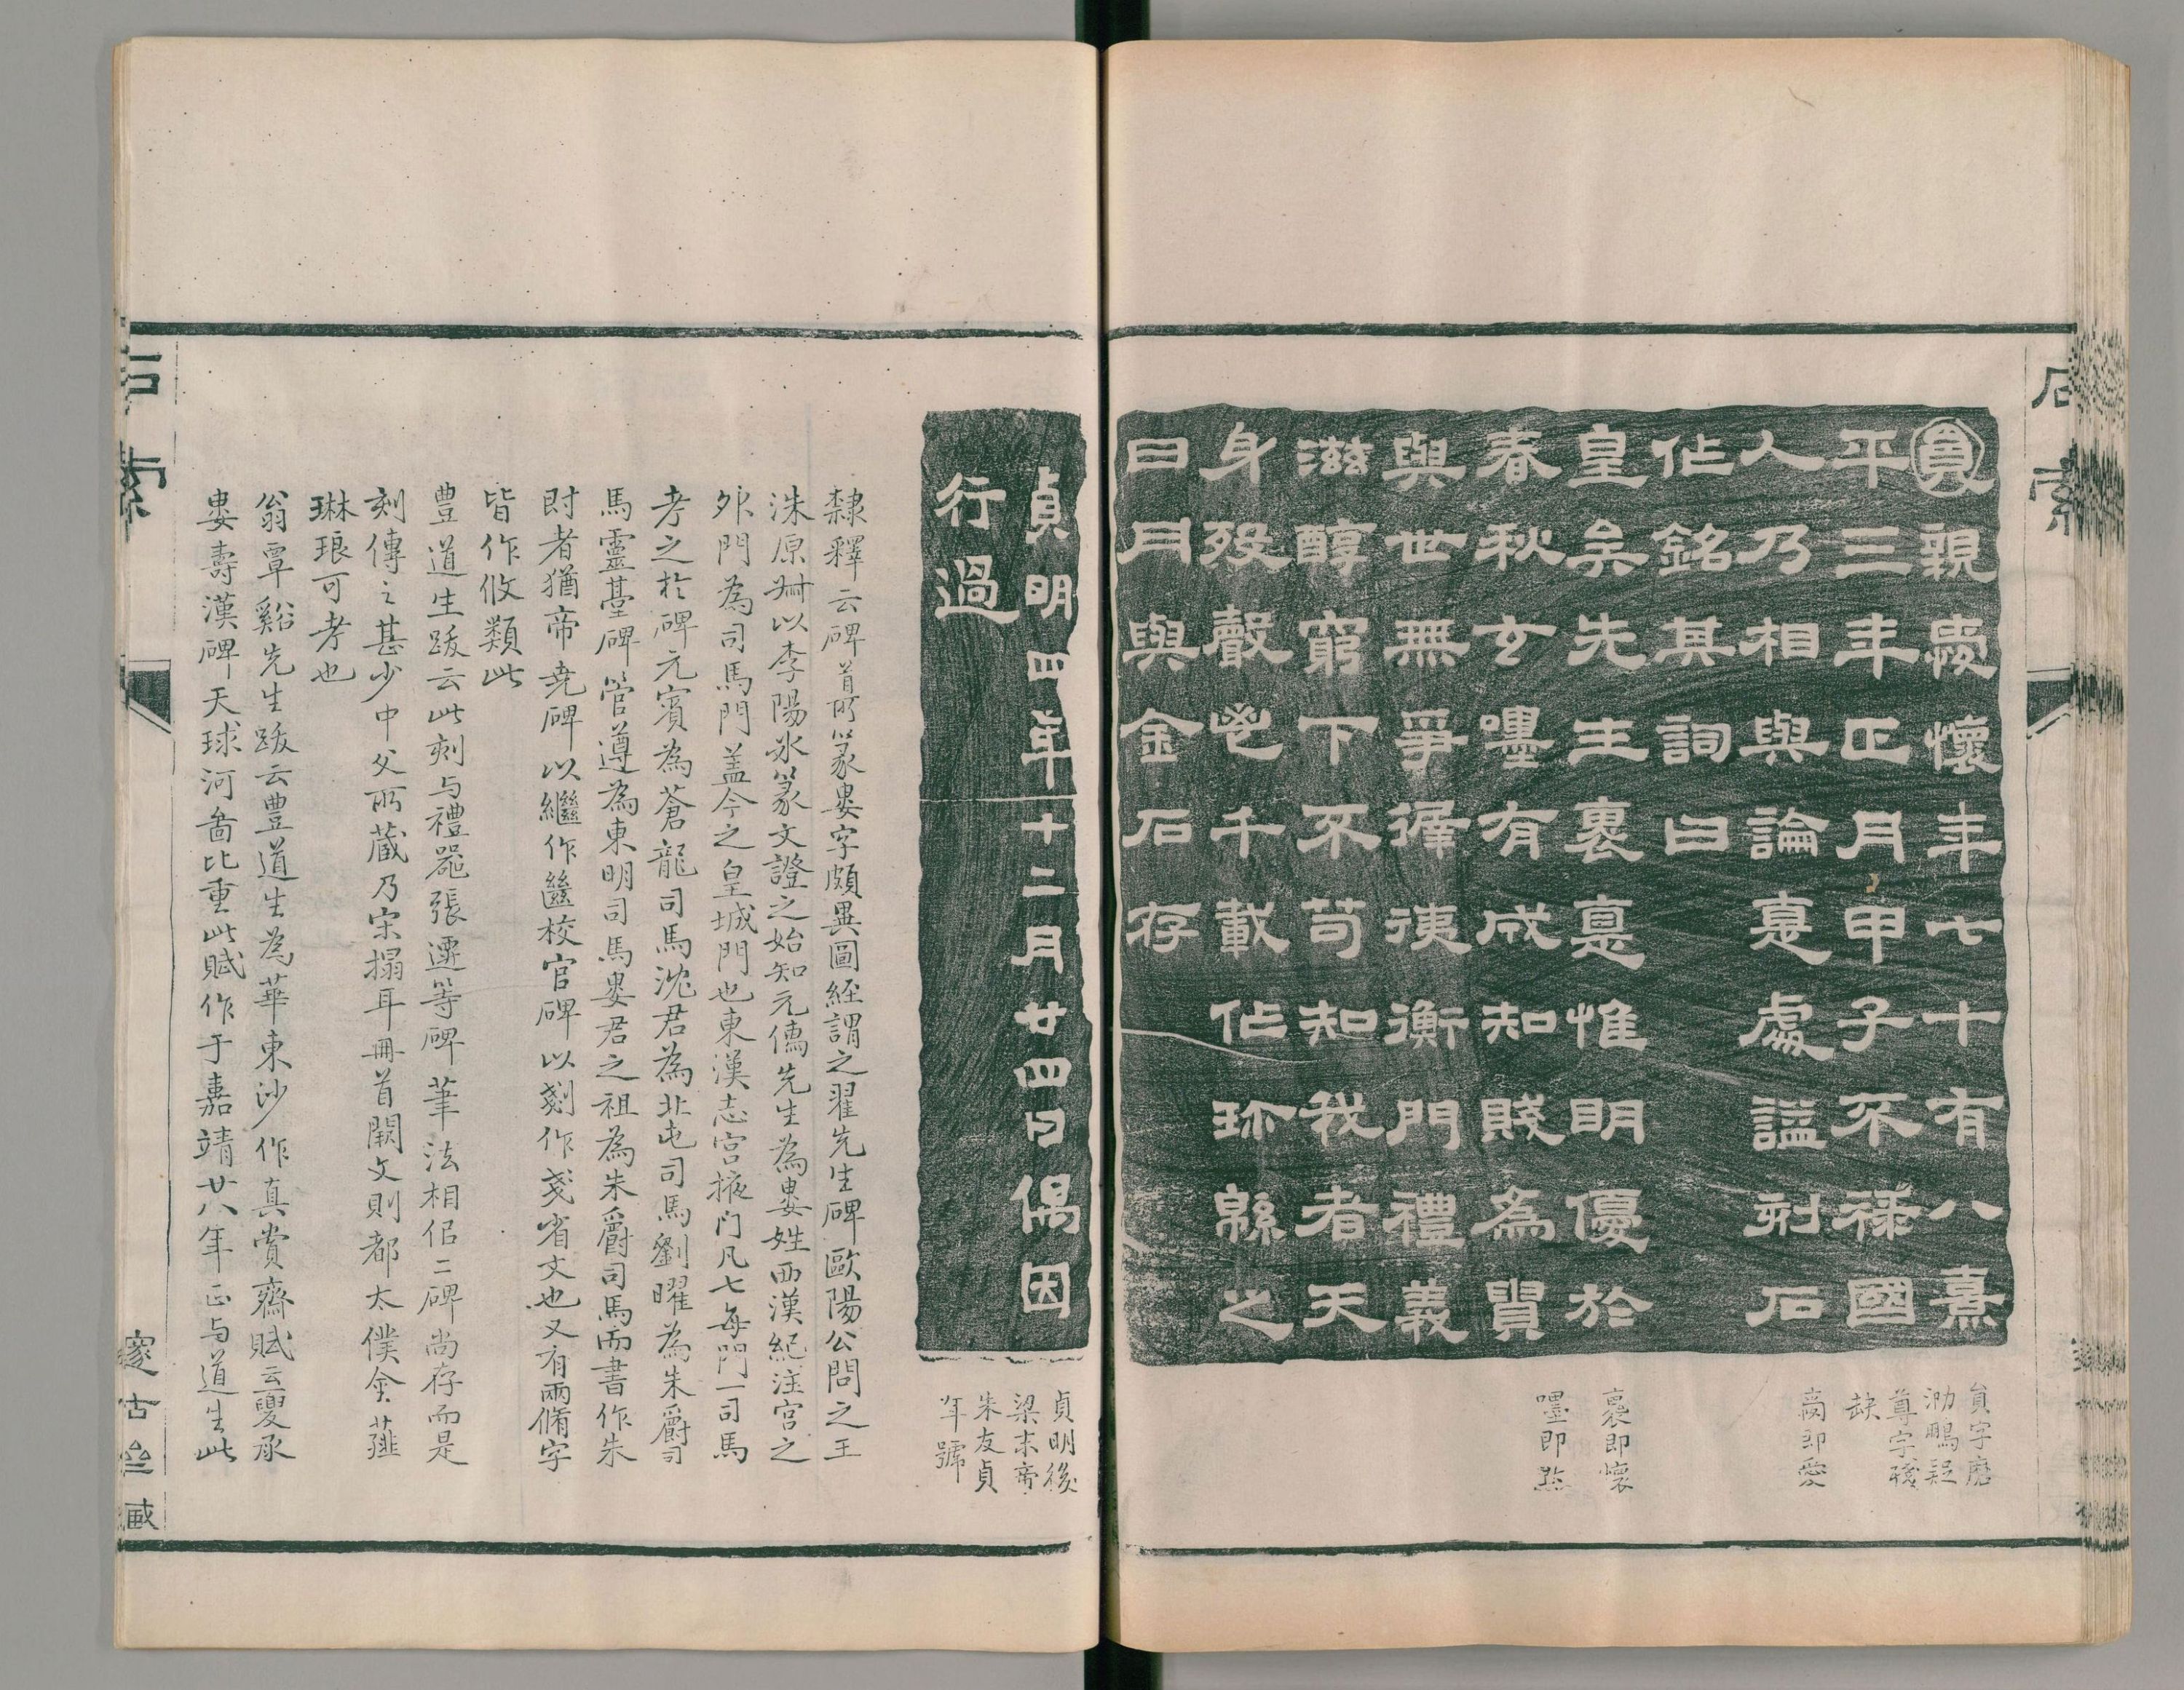 石索
員親㤅懷年七十有八熹
平三年正月甲子不祿國
人乃相與論悳處謚刻石
作銘其詞曰
皇矣先生褱悳惟明優於
春秋玄嘿有成知賤為貴
與世無爭㩁㣟衡門禮義
滋醇窮下不苟知我者天
身歿聲邑千載作珎緜之
日月與金石存
員字磨
泐鵬疑
尊字殘
缺
㤅即愛
褱即懷
嚜即默
貞明四年十二月廿四日偶因
行過
貞明後
梁末帝
朱友貞
年號
隸釋云碑首所篆婁字頗異圖經謂之翟先生碑歐陽公問之王
洙原叔以李陽冰篆文證之始知元儒先生為婁姓西漢紀注宮之
外門為司馬門蓋今之皇城門也東漢志宮掖门凡七每門一司馬
考之於碑元賓為蒼龍司馬沈君為北屯司馬劉曜為朱爵司
馬靈臺碑管遵為東明司馬婁君之祖為朱爵司馬而書作朱
尌者猶帝堯碑以繼作㡭校官碑以剗作戔省文也又有兩脩字
皆作攸類此
豊道生跋云此刻与禮器張遷等碑筆法相侣二碑尚存而是
刻傳之甚少中父所藏乃宋搨耳冊首闕文則都太僕金薤
琳琅可考也
翁覃谿先生跋云豊道生為華東沙作真賞齋賦云夏承
婁壽漢碑天球河啚比重此賦作于嘉靖廿八年正与道生此
石索
邃古垒藏